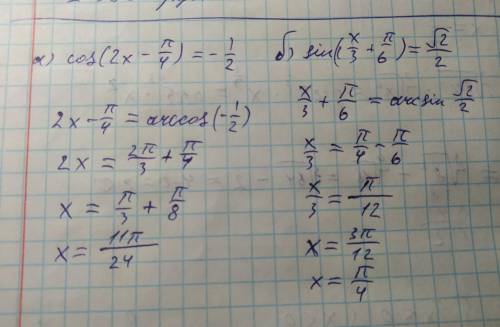 а) cos(2x - π/4) = -1/2
2x - π/4 = arccos(-1/2)
2x = 2π/3 + π/4
x = π/3 + π/8
x = 11π/24
б) sin(x/3 + π/6) = √2/2
x/3 + π/6 = arcsin √2/2
x/3 = π/4 - π/6
x/3 = π/12
x = 3π/12
x = π/4